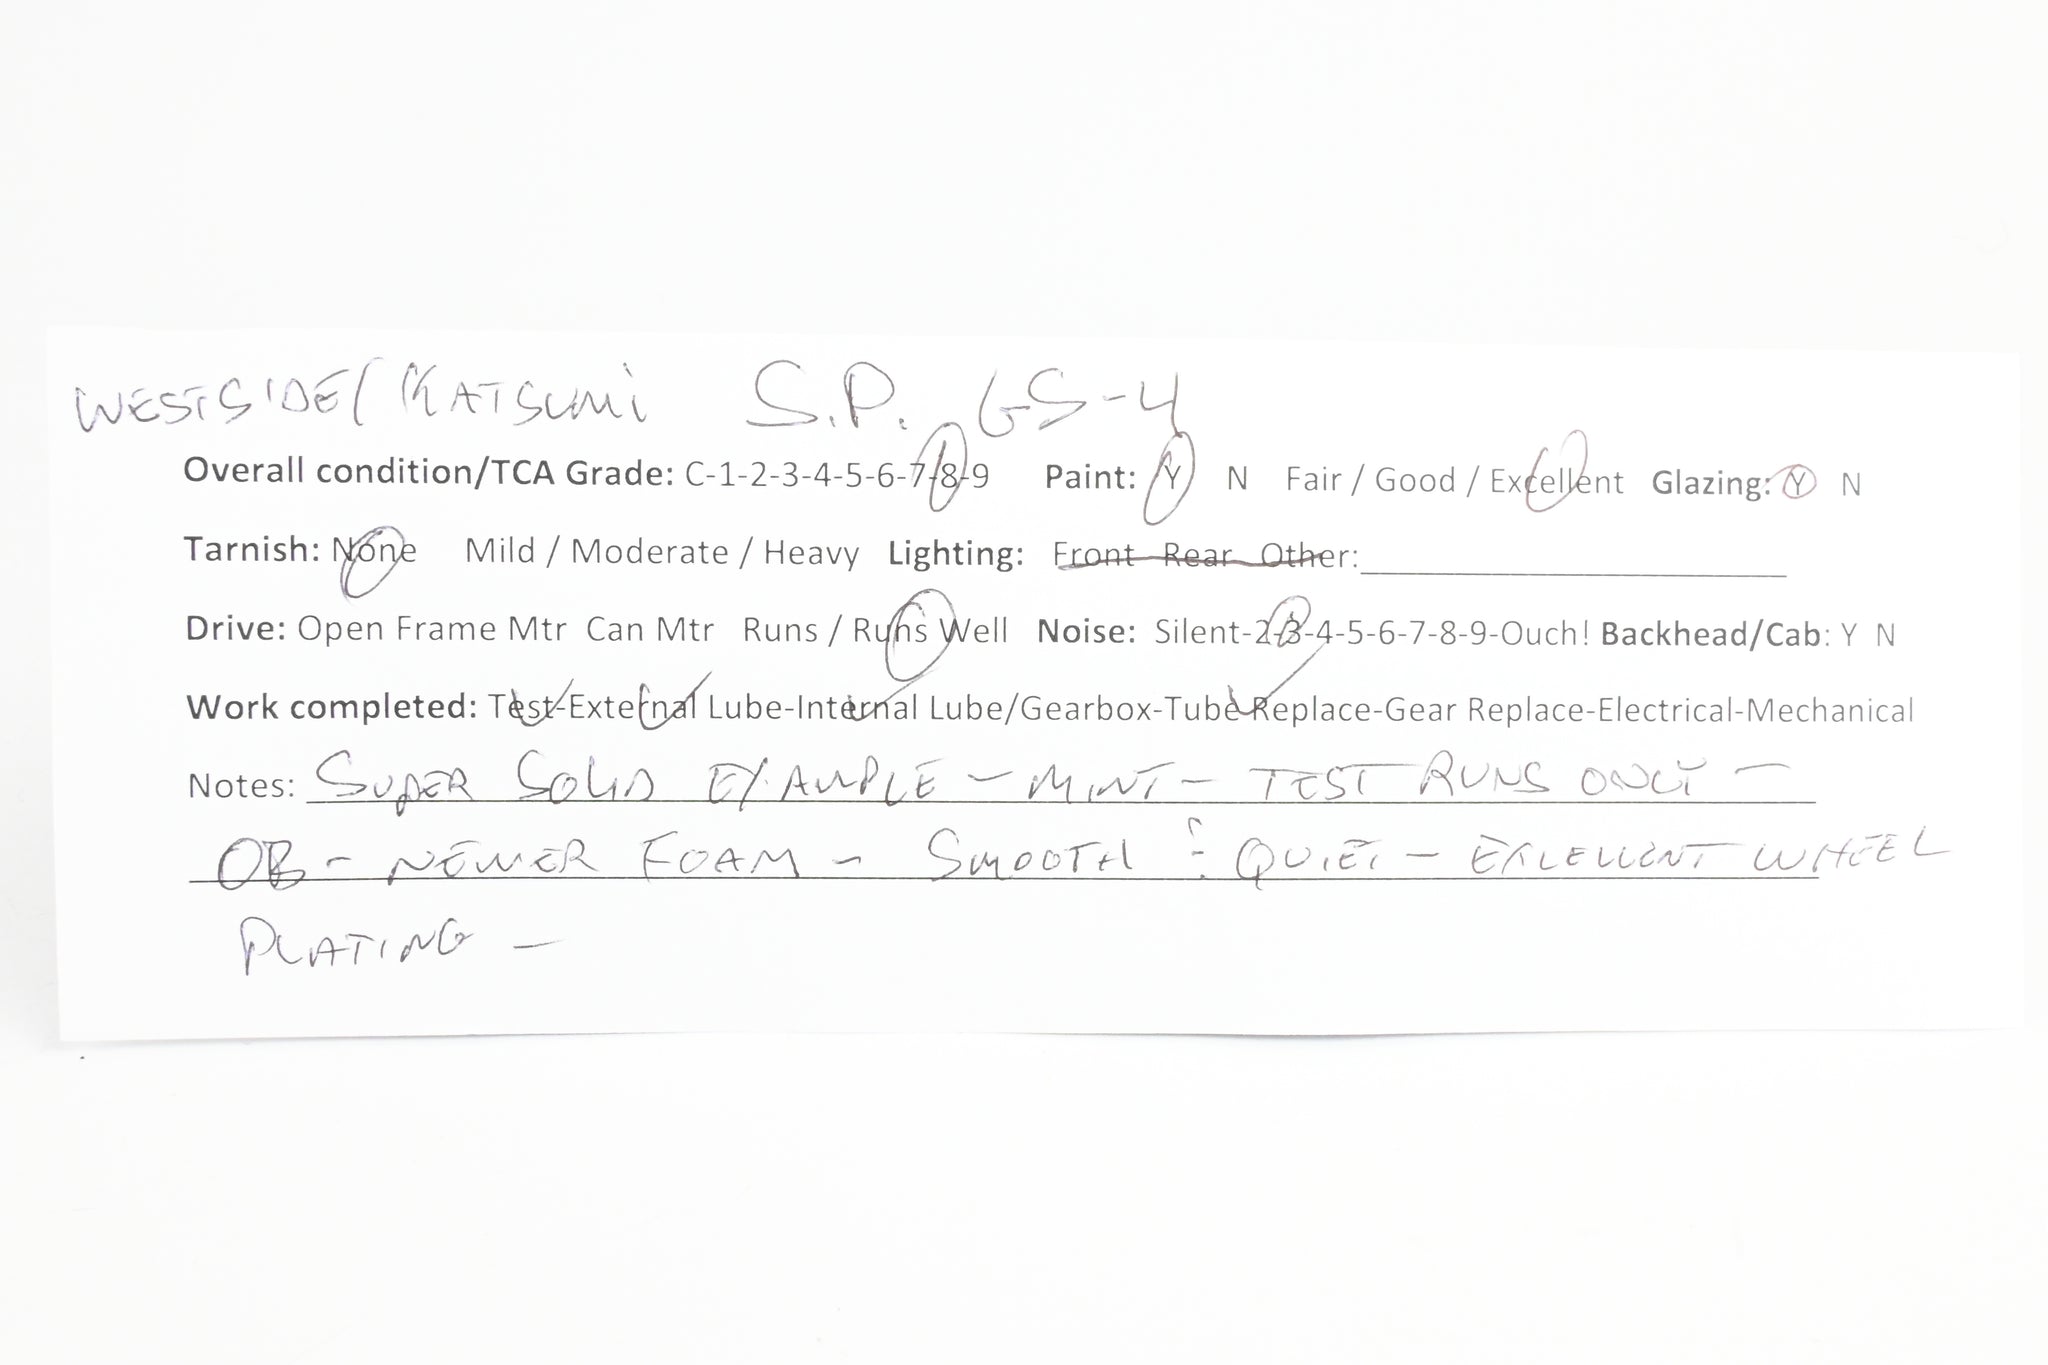 WESTSIDE/KATSUMI S.P. GS-4
Overall condition/TCA Grade: C-1-2-3-4-5-6-7-8-9 Paint: Y N Fair / Good / Excellent Glazing: Y N
Tarnish: None Mild / Moderate / Heavy Lighting: Front Rear Other:
Drive: Open Frame Mtr Can Mtr Runs / Runs Well Noise: Silent-2-3-4-5-6-7-8-9-Ouch! Backhead/Cab: Y N
Work completed: Test-External Lube-Internal Lube/Gearbox-Tube Replace-Gear Replace-Electrical-Mechanical
Notes: SUPER SOLID EXAMPLE - MINT - TEST RUNS ONLY -
OB - NEWER FOAM - SMOOTH & QUIET - EXCELLENT WHEEL
PLATING -